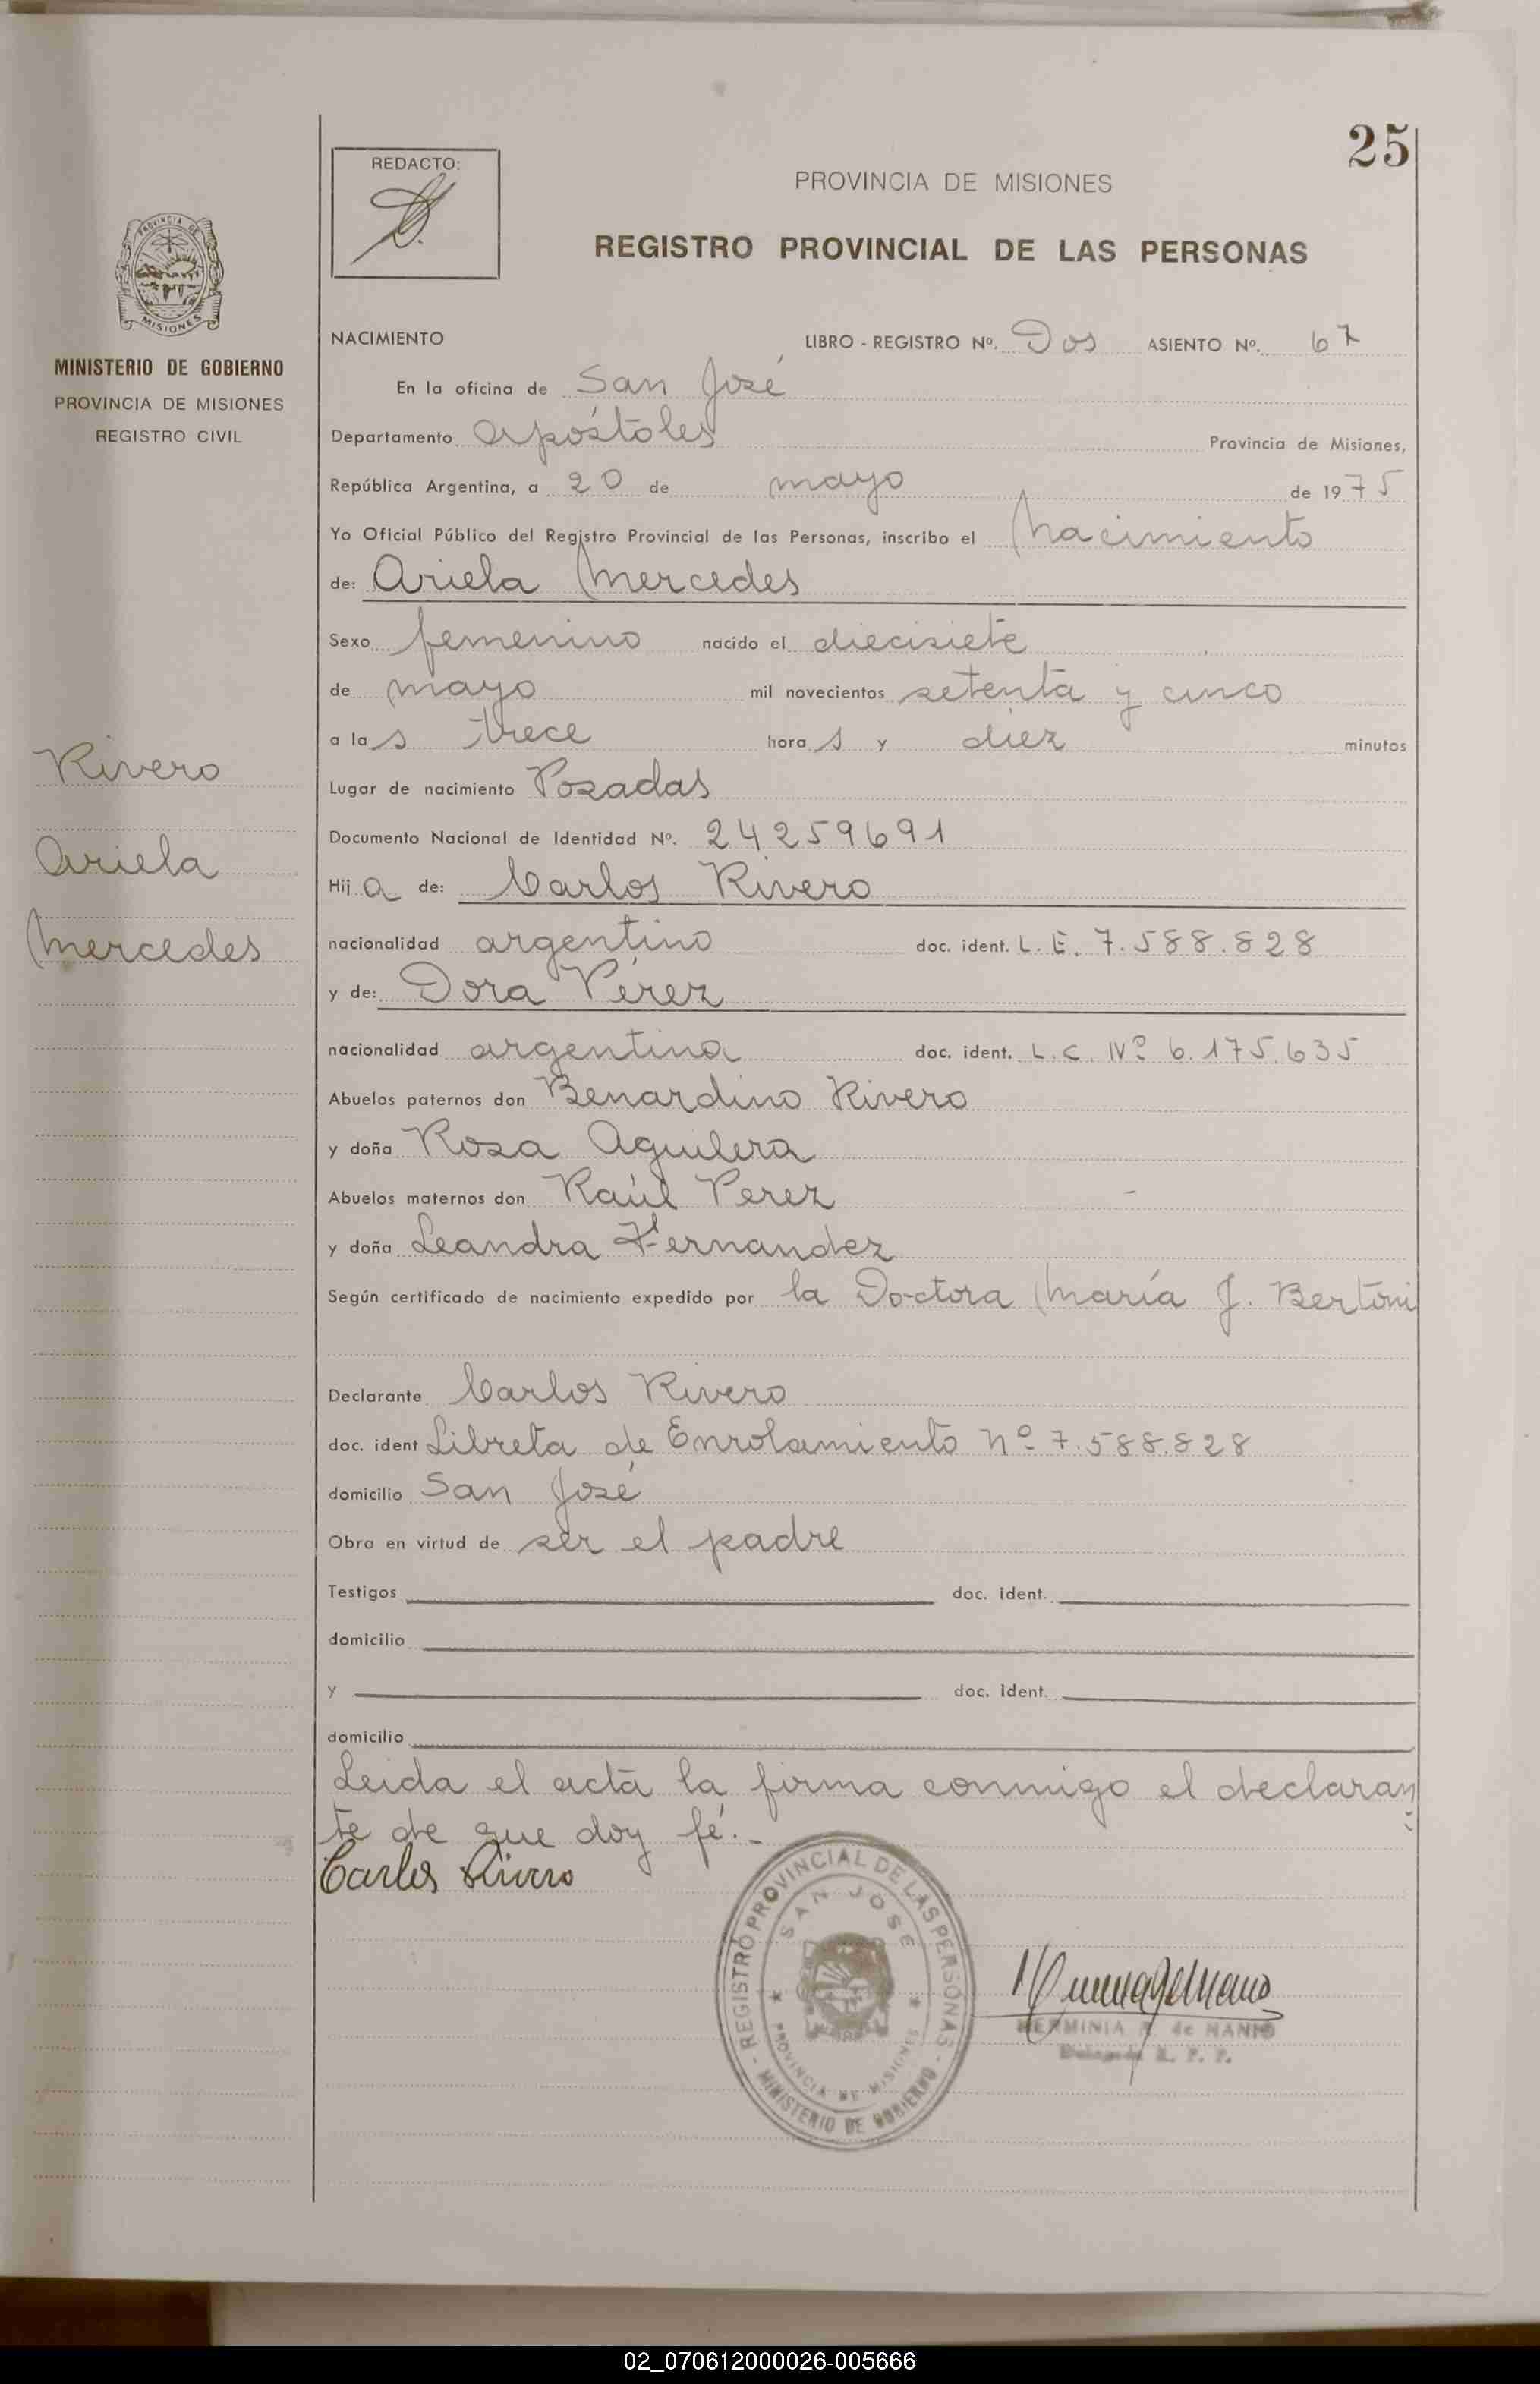 25
REDACTO:
PROVINCIA DE MISIONES
REGISTRO PROVINCIAL DE LAS PERSONAS
PROVINCIA DE
MISIONES
MINISTERIO DE GOBIERNO
PROVINCIA DE MISIONES
REGISTRO CIVIL
Rivero
Ariela
Mercedes
NACIMIENTO LIBRO - REGISTRO Nº. Dos ASIENTO Nº. 67
En la oficina de San José
Departamento Apóstoles Provincia de Misiones,
República Argentina, a 20 de mayo de 1975
Yo Oficial Público del Registro Provincial de las Personas, inscribo el Nacimiento
de: Ariela Mercedes
Sexo femenino nacido el diecisiete
de mayo mil novecientos setenta y cinco
a las trece horas y diez minutos
Lugar de nacimiento Posadas
Documento Nacional de Identidad Nº. 24259691
Hija de: Carlos Rivero
nacionalidad argentino doc. ident. L. E. 7.588.828
y de: Dora Pérez
nacionalidad argentina doc. ident. L. C. Nº 6.175.635
Abuelos paternos don Benardino Rivero
y doña Rosa Aguilera
Abuelos maternos don Raúl Perez
y doña Leandra Fernandez
Según certificado de nacimiento expedido por la Doctora María J. Bertoni
Declarante Carlos Rivero
doc. ident Libreta de Enrolamiento Nº 7.588.828
domicilio San José
Obra en virtud de ser el padre
Testigos doc. ident.
domicilio
y doc. ident.
domicilio
Leida el acta la firma conmigo el declaran
te de que doy fé.-
Carlos Rivero
REGISTRO PROVINCIAL DE LAS PERSONAS
SAN JOSE
PROVINCIA DE MISIONES
MINISTERIO DE GOBIERNO
HERMINIA de NANNO
R. P. P.
02_070612000026-005666